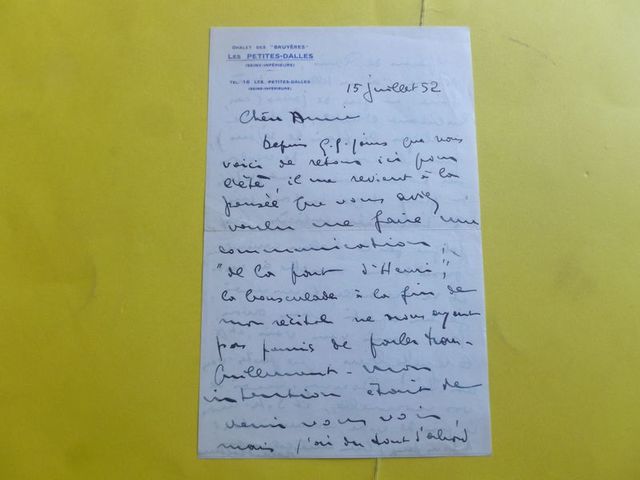 CHALET DES "BRUYÈRES"
LES PETITES-DALLES
(SEINE-INFÉRIEURE)
TÉL. 16 LES PETITES-DALLES
(SEINE-INFÉRIEURE)
15 juillet 52
Chère Annie
Depuis q.q. jours que nous
voici de retour ici pour
l'été, il me revient à la
pensée que vous aviez
voulu me faire une
communication,
"de la part d'Henri",
la bousculade à la fin de
mon récital ne nous ayant
pas permis de parler tran-
quillement - mon
intention était de
venir vous voir,
mais j'ai dû tout d'abord